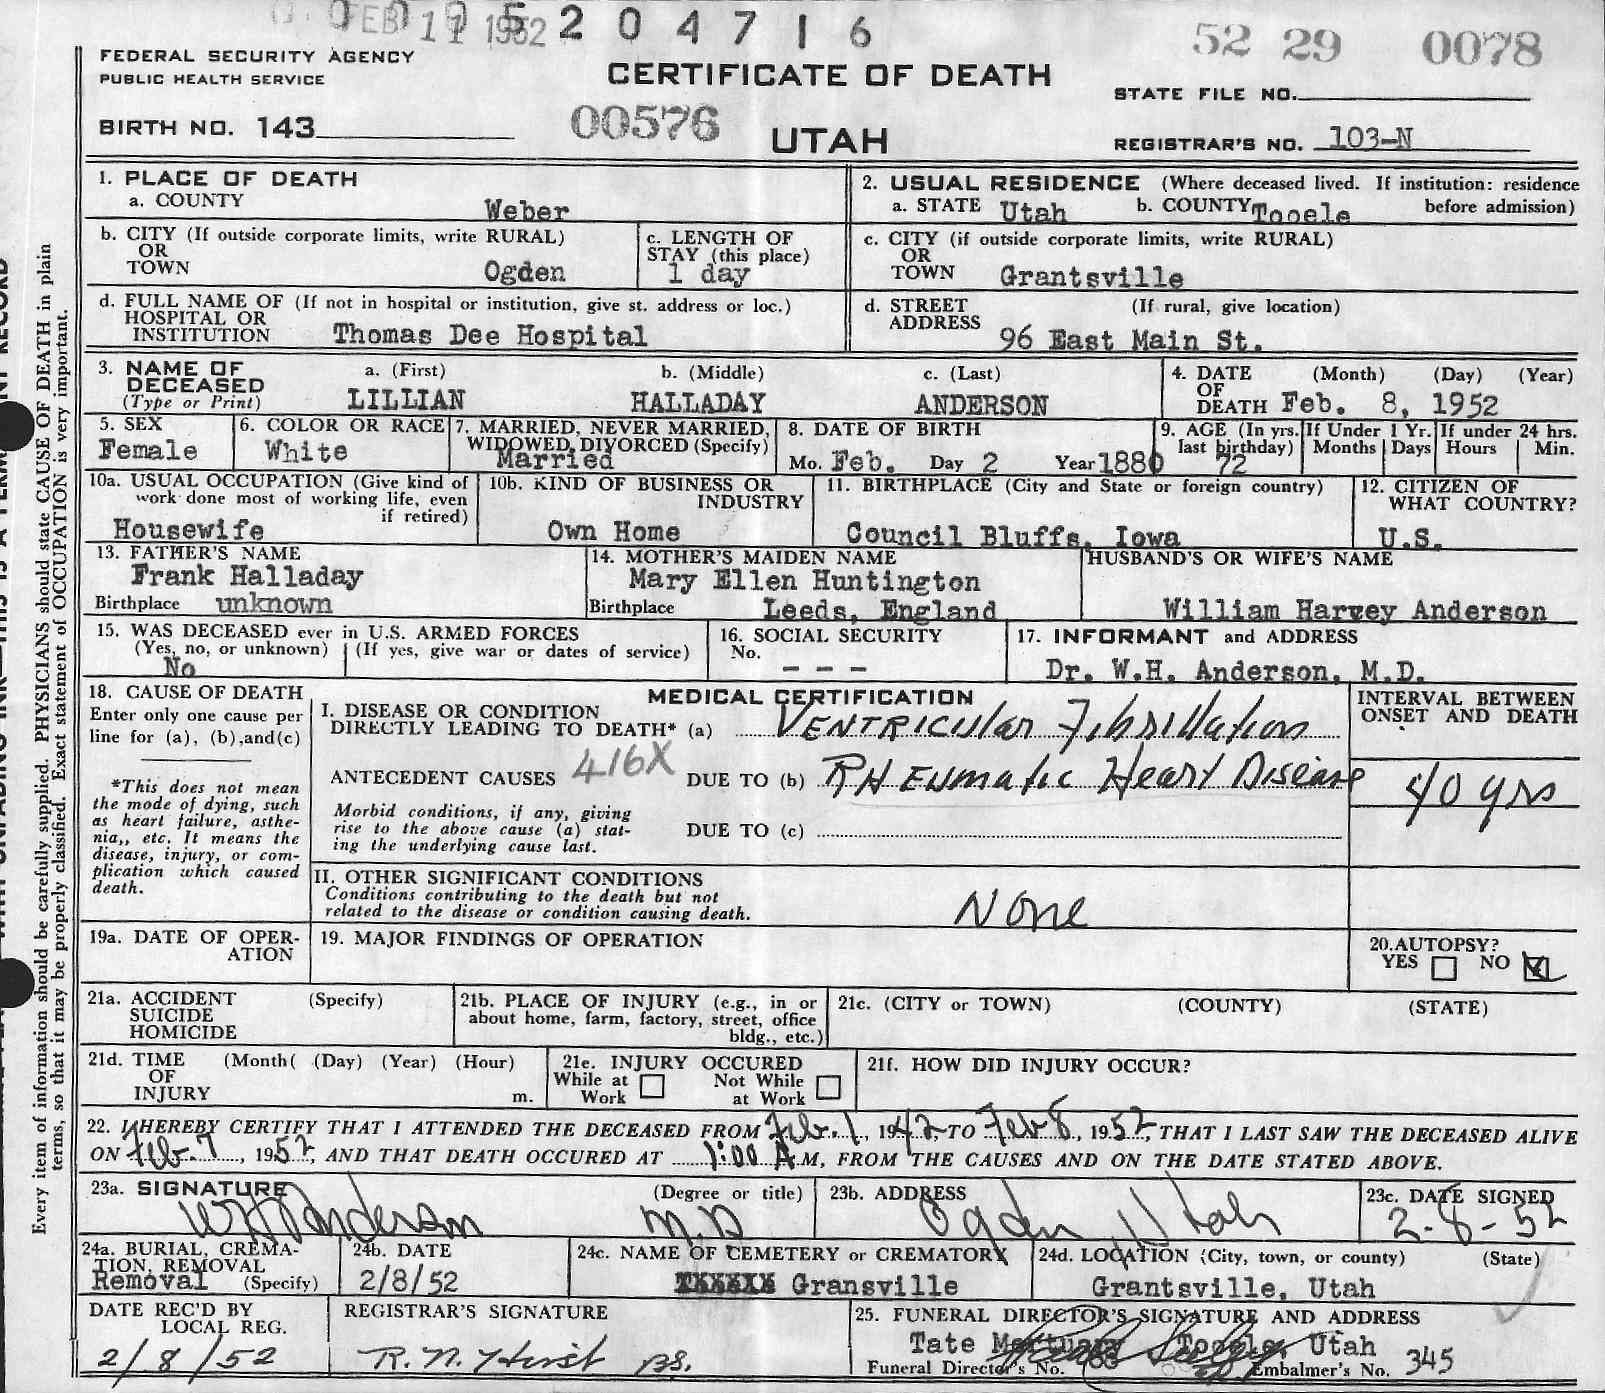 FEB 11 1952 5 2 0 4 7 1 6
52 29 0078
FEDERAL SECURITY AGENCY
PUBLIC HEALTH SERVICE
CERTIFICATE OF DEATH
STATE FILE NO.
BIRTH NO. 143
00576
UTAH
REGISTRAR'S NO. 103-N
1. PLACE OF DEATH
a. COUNTY
Weber
2. USUAL RESIDENCE (Where deceased lived. If institution: residence
a. STATE Utah b. COUNTY Tooele before admission)
b. CITY (If outside corporate limits, write RURAL)
OR
TOWN Ogden
c. LENGTH OF
STAY (this place)
1 day
c. CITY (if outside corporate limits, write RURAL)
OR
TOWN Grantsville
d. FULL NAME OF (If not in hospital or institution, give st. address or loc.)
HOSPITAL OR
INSTITUTION Thomas Dee Hospital
d. STREET (If rural, give location)
ADDRESS
96 East Main St.
3. NAME OF
DECEASED
(Type or Print)
a. (First) b. (Middle) c. (Last)
LILLIAN HALLADAY ANDERSON
4. DATE (Month) (Day) (Year)
OF
DEATH Feb. 8, 1952
5. SEX
Female
6. COLOR OR RACE
White
7. MARRIED, NEVER MARRIED,
WIDOWED, DIVORCED (Specify)
Married
8. DATE OF BIRTH
Mo. Feb. Day 2 Year 1880
9. AGE (In yrs.
last birthday)
72
If Under 1 Yr.
Months Days
If under 24 hrs.
Hours Min.
10a. USUAL OCCUPATION (Give kind of
work done most of working life, even
if retired)
Housewife
10b. KIND OF BUSINESS OR
INDUSTRY
Own Home
11. BIRTHPLACE (City and State or foreign country)
Council Bluffs, Iowa
12. CITIZEN OF
WHAT COUNTRY?
U.S.
13. FATHER'S NAME
Frank Halladay
Birthplace unknown
14. MOTHER'S MAIDEN NAME
Mary Ellen Huntington
Birthplace Leeds, England
HUSBAND'S OR WIFE'S NAME
William Harvey Anderson
15. WAS DECEASED ever in U.S. ARMED FORCES
(Yes, no, or unknown) (If yes, give war or dates of service)
No
16. SOCIAL SECURITY
No.
- - -
17. INFORMANT and ADDRESS
Dr. W.H. Anderson, M.D.
18. CAUSE OF DEATH
Enter only one cause per
line for (a), (b),and(c)
*This does not mean
the mode of dying, such
as heart failure, asthe-
nia,, etc. It means the
disease, injury, or com-
plication which caused
death.
MEDICAL CERTIFICATION
I. DISEASE OR CONDITION
DIRECTLY LEADING TO DEATH* (a) Ventricular Fibrillation
ANTECEDENT CAUSES 416X DUE TO (b) Rheumatic Heart Disease
Morbid conditions, if any, giving
rise to the above cause (a) stat-
ing the underlying cause last.
DUE TO (c)
INTERVAL BETWEEN
ONSET AND DEATH
40 yrs
II. OTHER SIGNIFICANT CONDITIONS
Conditions contributing to the death but not
related to the disease or condition causing death.
None
19a. DATE OF OPER-
ATION
19. MAJOR FINDINGS OF OPERATION
20. AUTOPSY?
YES NO
21a. ACCIDENT (Specify)
SUICIDE
HOMICIDE
21b. PLACE OF INJURY (e.g., in or
about home, farm, factory, street, office
bldg., etc.)
21c. (CITY or TOWN) (COUNTY) (STATE)
21d. TIME (Month( (Day) (Year) (Hour)
OF
INJURY m.
21e. INJURY OCCURED
While at Work
Not While at Work
21f. HOW DID INJURY OCCUR?
22. I HEREBY CERTIFY THAT I ATTENDED THE DECEASED FROM Feb. 1, 1942, TO Feb 8, 1952, THAT I LAST SAW THE DECEASED ALIVE
ON Feb. 7, 1952, AND THAT DEATH OCCURED AT 1:00 A.M, FROM THE CAUSES AND ON THE DATE STATED ABOVE.
23a. SIGNATURE (Degree or title)
WH Anderson M.D
23b. ADDRESS
Ogden, Utah
23c. DATE SIGNED
2-8-52
24a. BURIAL, CREMA-
TION, REMOVAL
Removal (Specify)
24b. DATE
2/8/52
24c. NAME OF CEMETERY or CREMATORY
Gransville
24d. LOCATION (City, town, or county) (State)
Grantsville, Utah
DATE REC'D BY
LOCAL REG.
2/8/52
REGISTRAR'S SIGNATURE
R.N. Hirst
25. FUNERAL DIRECTOR'S SIGNATURE AND ADDRESS
Tate Mortuary Tooele, Utah
Funeral Director's No. Embalmer's No. 345
Every item of information should be carefully supplied. PHYSICIANS should state CAUSE OF DEATH in plain
terms, so that it may be properly classified. Exact statement of OCCUPATION is very important.